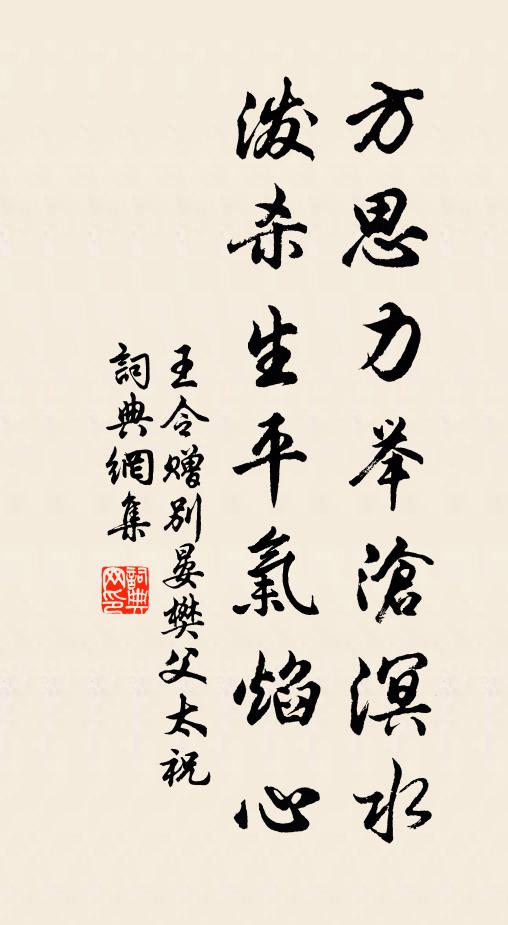 方思力举滄溟水
泼杀生平氣焰心
王令赠别晏樊父太祝
詞典網集
詞典
网印